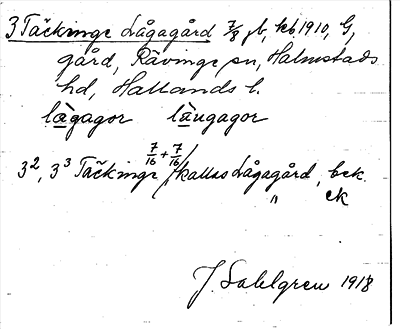 3 Täckinge Lågagård 7/8 jb, kb 1910, G,
gård, Rävinge sn, Halmstads
hd, Hallands l.
lægagor läugagor
3², 3³ Täckinge 7/16 + 7/16 / kallas Lågagård, bek.
" ek
J. Sahlgren 1918